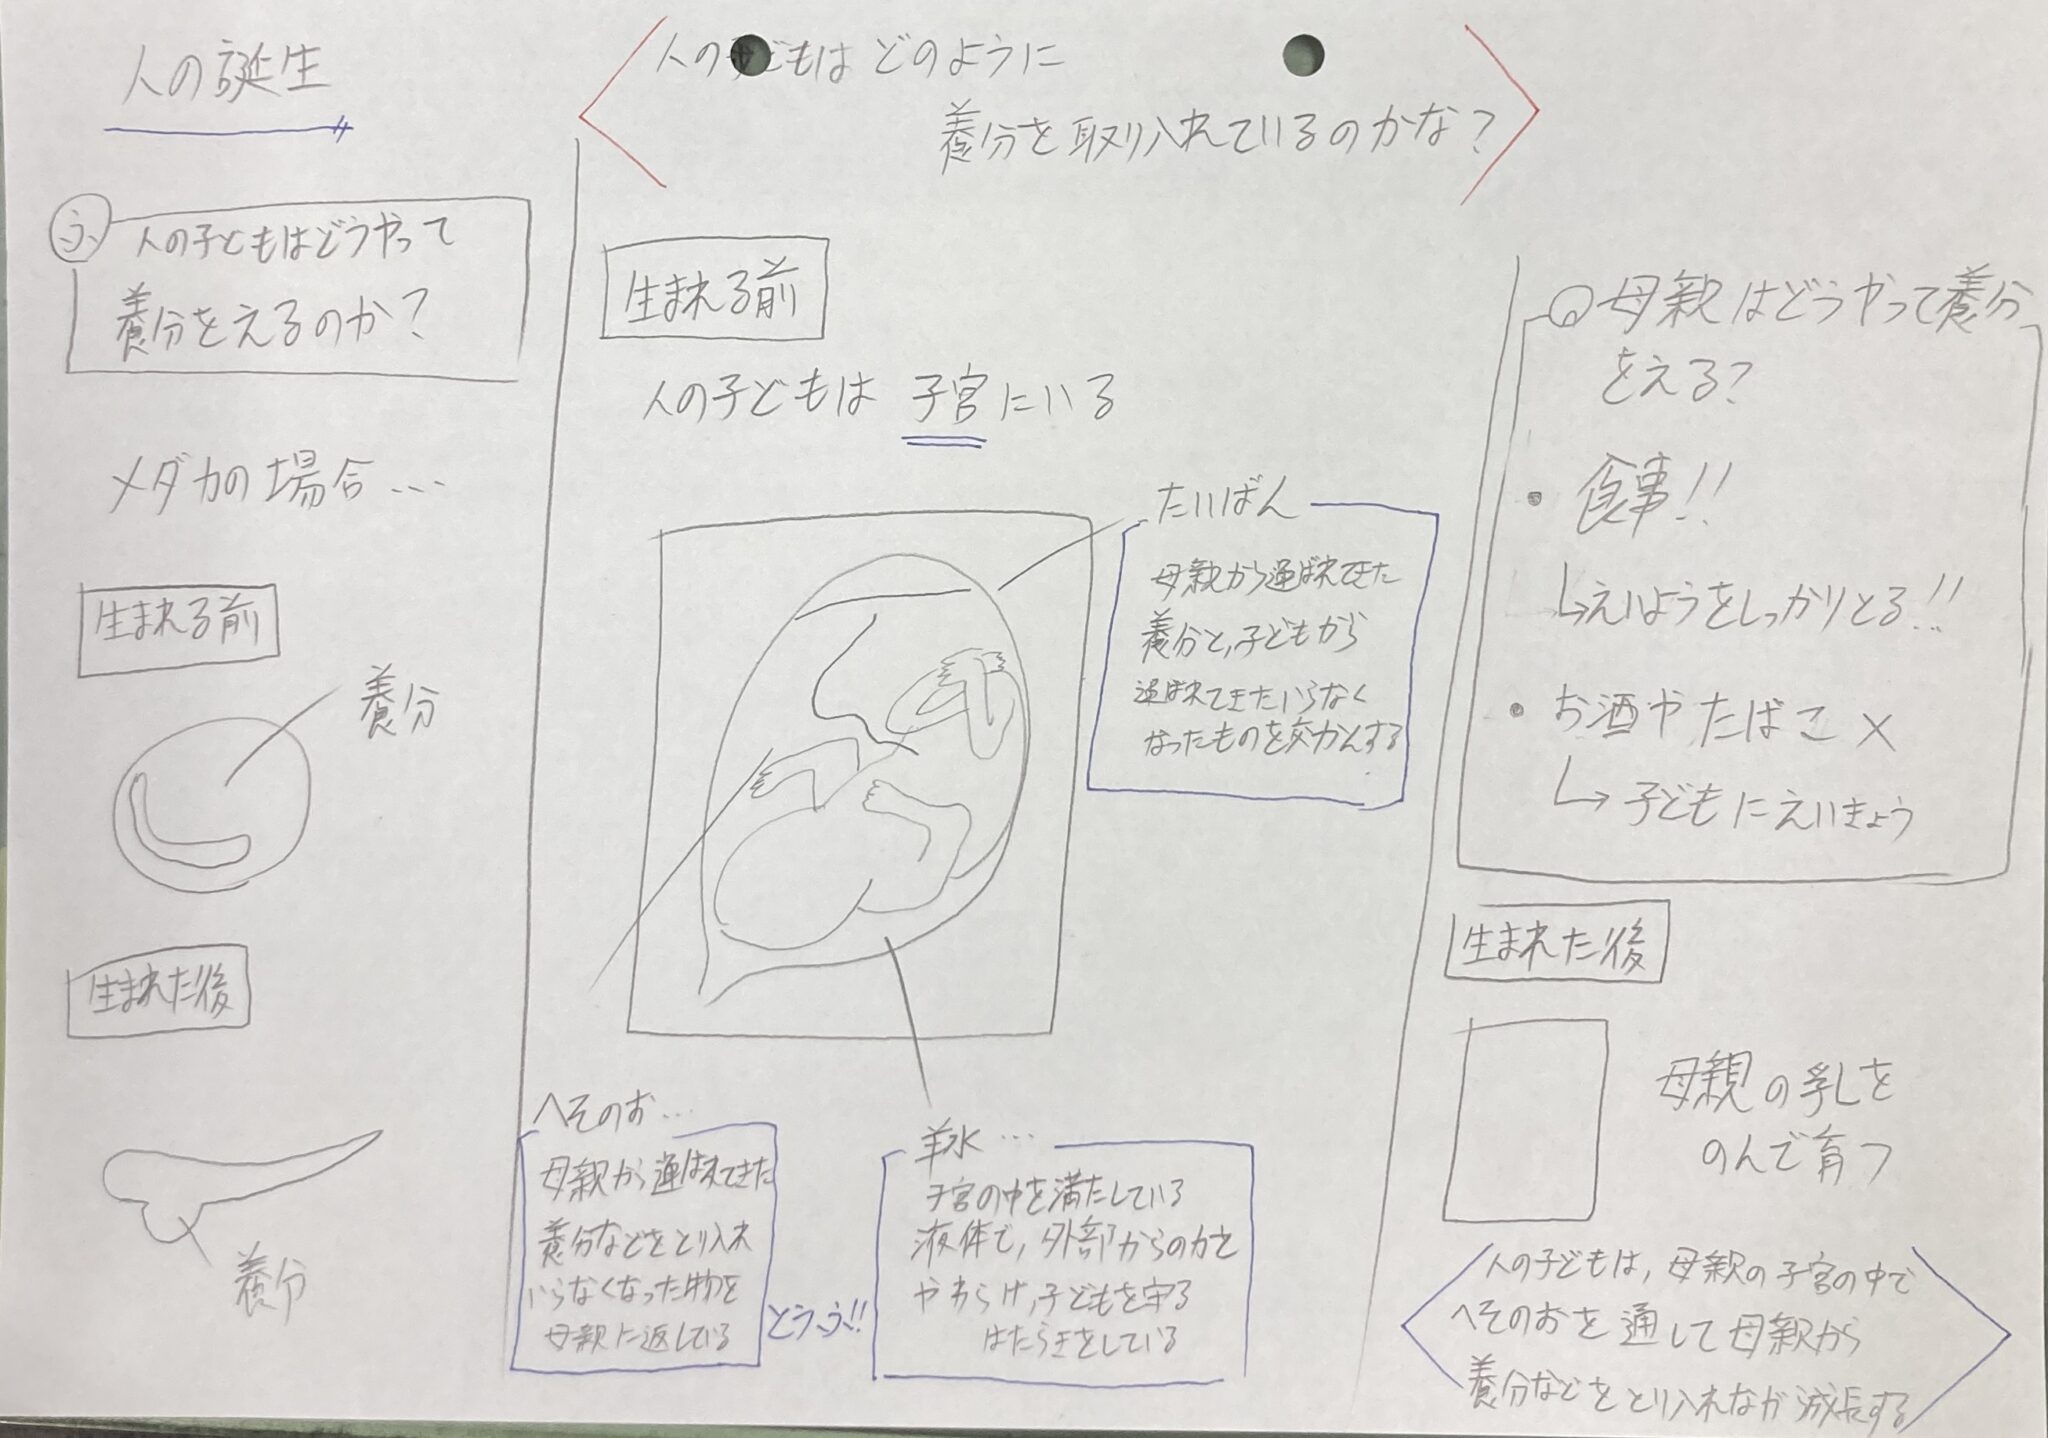 人の誕生
ふ
人の子どもはどうやって
養分をえるのか?
メダカの場合…
生まれる前
養分
生まれた後
養分
人の子どもは どのように
養分を取り入れているのかな?
生まれる前
人の子どもは 子宮にいる
たいばん
母親から運ばれてきた
養分と,子どもから
運ばれてきたいらなく
なったものを交かんする
へそのお…
母親から運ばれてきた
養分などをとり入れ
いらなくなった物を
母親に返している
とうふ!!
羊水…
子宮の中を満たしている
液体で,外部からの力を
やわらげ,子どもを守る
はたらきをしている
Q 母親はどうやって養分
をえる?
・食事!!
↳えいようをしっかりとる!!
・お酒やたばこ×
↳子どもにえいきょう
生まれた後
母親の乳を
のんで育つ
人の子どもは,母親の子宮の中で
へそのおを通して母親から
養分などをとり入れながら成長する